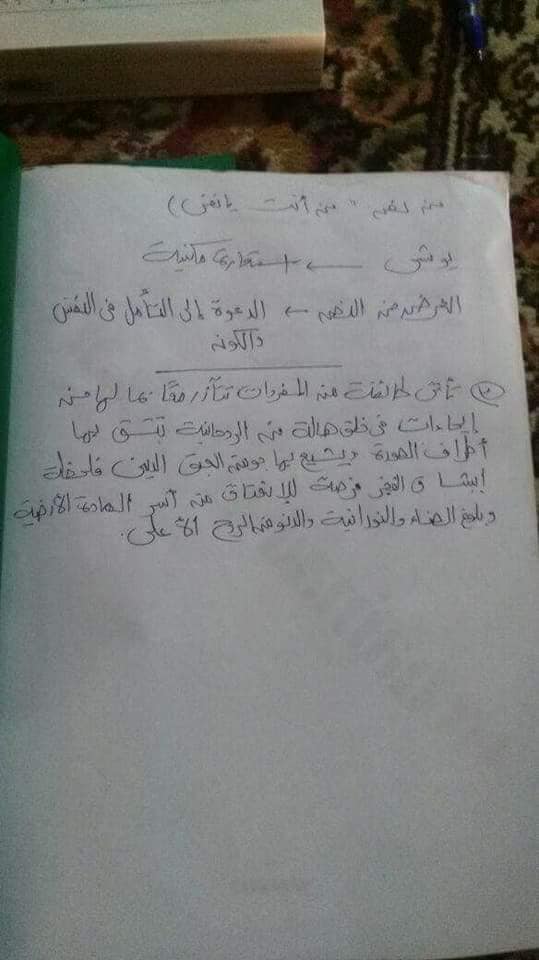 من نص " من أنت يا نفس )
يوشى ← استعارة مكنية
الغرض من النص ← الدعوة إلى التأمل فى النفس
والكون
تأتى طائفة من المفردات تتآزر معًا بما لها من
إيحاءات فى خلق هالة من الروحانية تتسق بها
أطراف الصورة ويشيع بها الجو الدينى فلحظة
الفجر فرصة للإنعتاق من أسر المادة الأرضية
وبلوغ الصفاء والنورانية والدنو من الروح الأعلى.